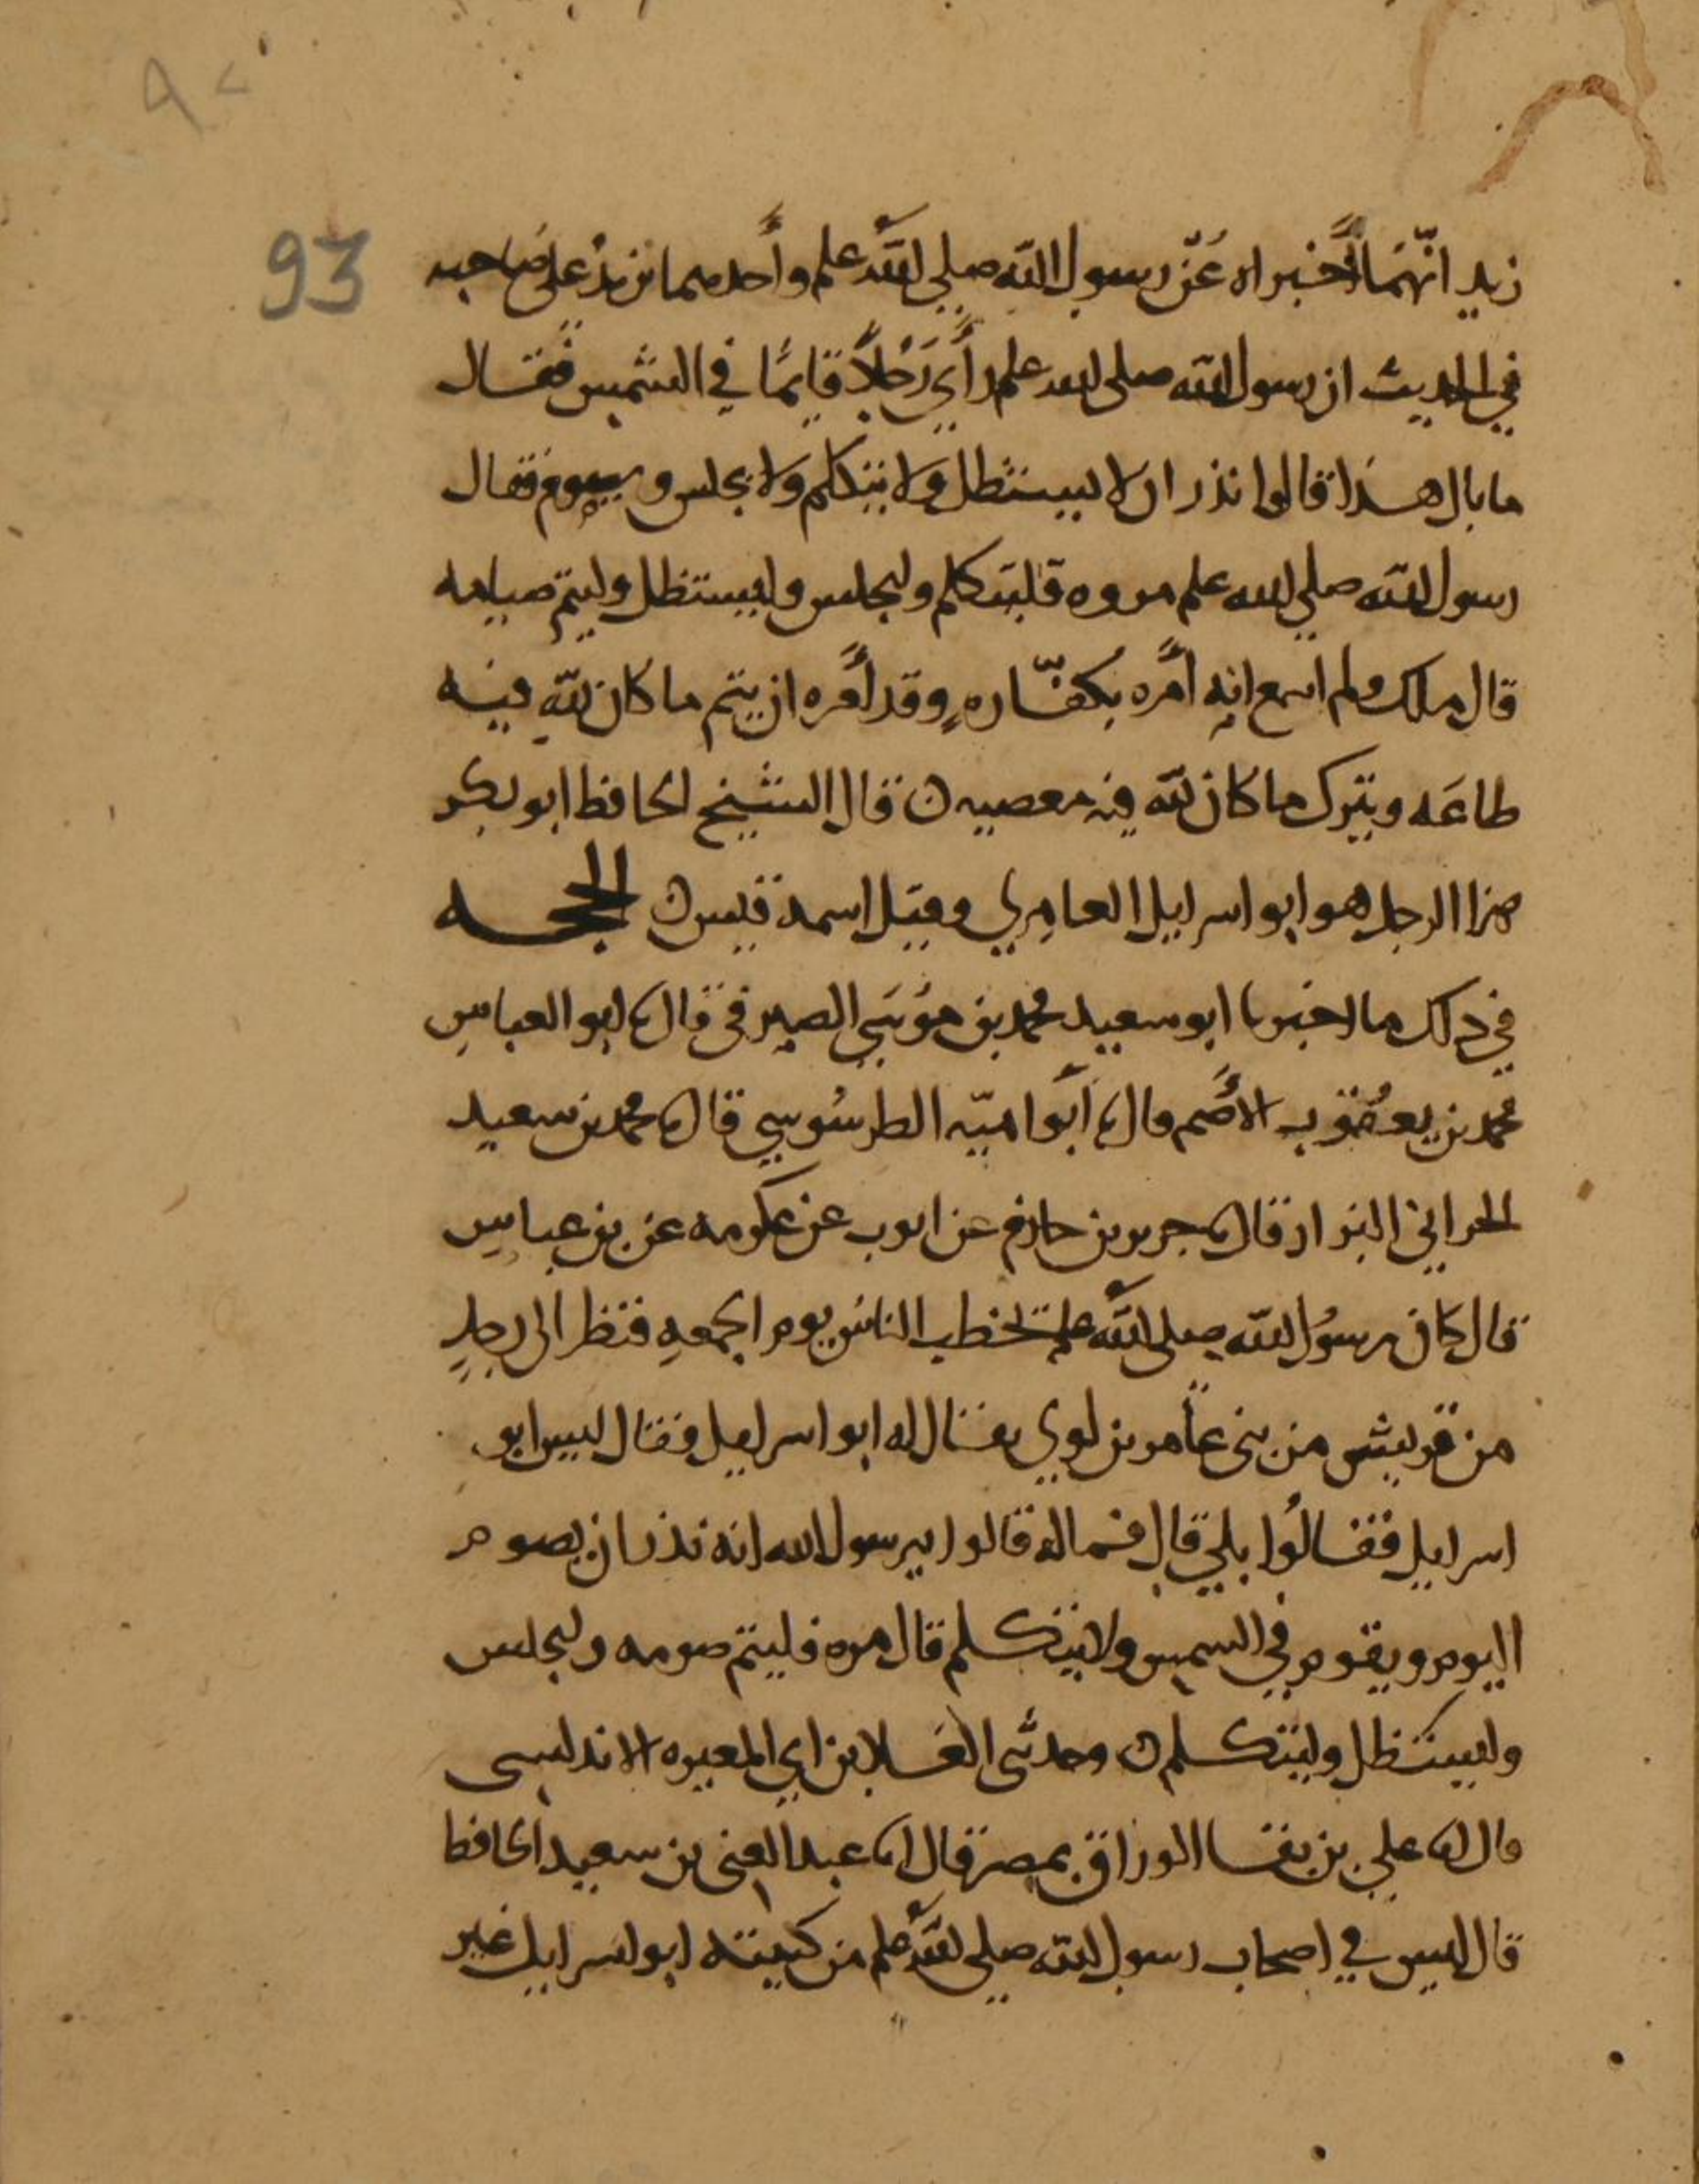 ٩٢
93
زيد انّهمَا أخبراه عَن رسول الله صلى الله علم وأحدهما يزيدُ على صَاحبه
في الحديث ان رسول الله صلى الله علم رأي رَجُلاً قايمًا في الشمس فقال
ما بال هذا قالوا نذر ان لا يستظل ولا يتكلم ولا يجلس ويصوم فقال
رسول الله صلي الله علم مروه فليتكلم وليجلس وليستظل وليتم صيامه
قال ملك ولم اسمع انه أمره بكفّاره وقد أمره ان يتم ما كان لله فيه
طاعَه ويترك ما كان لله فيه معصيه ن قال الشيخ الحافظ ابو بكر
هذا الرجل هو ابو اسرايل العامري وقيل اسمه قيس ن الحجه
في ذلك ما اخبرنا ابو سعيد محمد بن موُسَي الصيرفى قال نا ابو العباس
محمد بن يعقوب الأصم قال نا أبوا اميّه الطرسُوسي قال نا محمد بن سعيد
الحراني البزار قال نا جرير بن حازم عن ايوب عن عكرمه عن بن عباس
قال كان رسُول الله صلى الله علم يخطب الناسَ يوم الجمعهِ فنظر الى رجلٍ
من قريش من بنى عامر بن لوي يقال له ابو اسرايل فقال اليس ابو
اسرايل فقالوُا بلي قال فما له قالوا يرسول الله انه نذر ان يصوم
اليوم ويقوم في الشمس ولا يتكلم قال مره فليتم صومه وليجلس
وليستظل وليتكلم ن وحدثنى العَلا بن ابي المغيره الاندلسى
قال انا علي بن بقا الوراق بمصر قال انا عبد الغنى بن سعيد الحافظ
قال ليس في اصحاب رسول الله صلي الله علم من كنيته ابو اسرايل غير